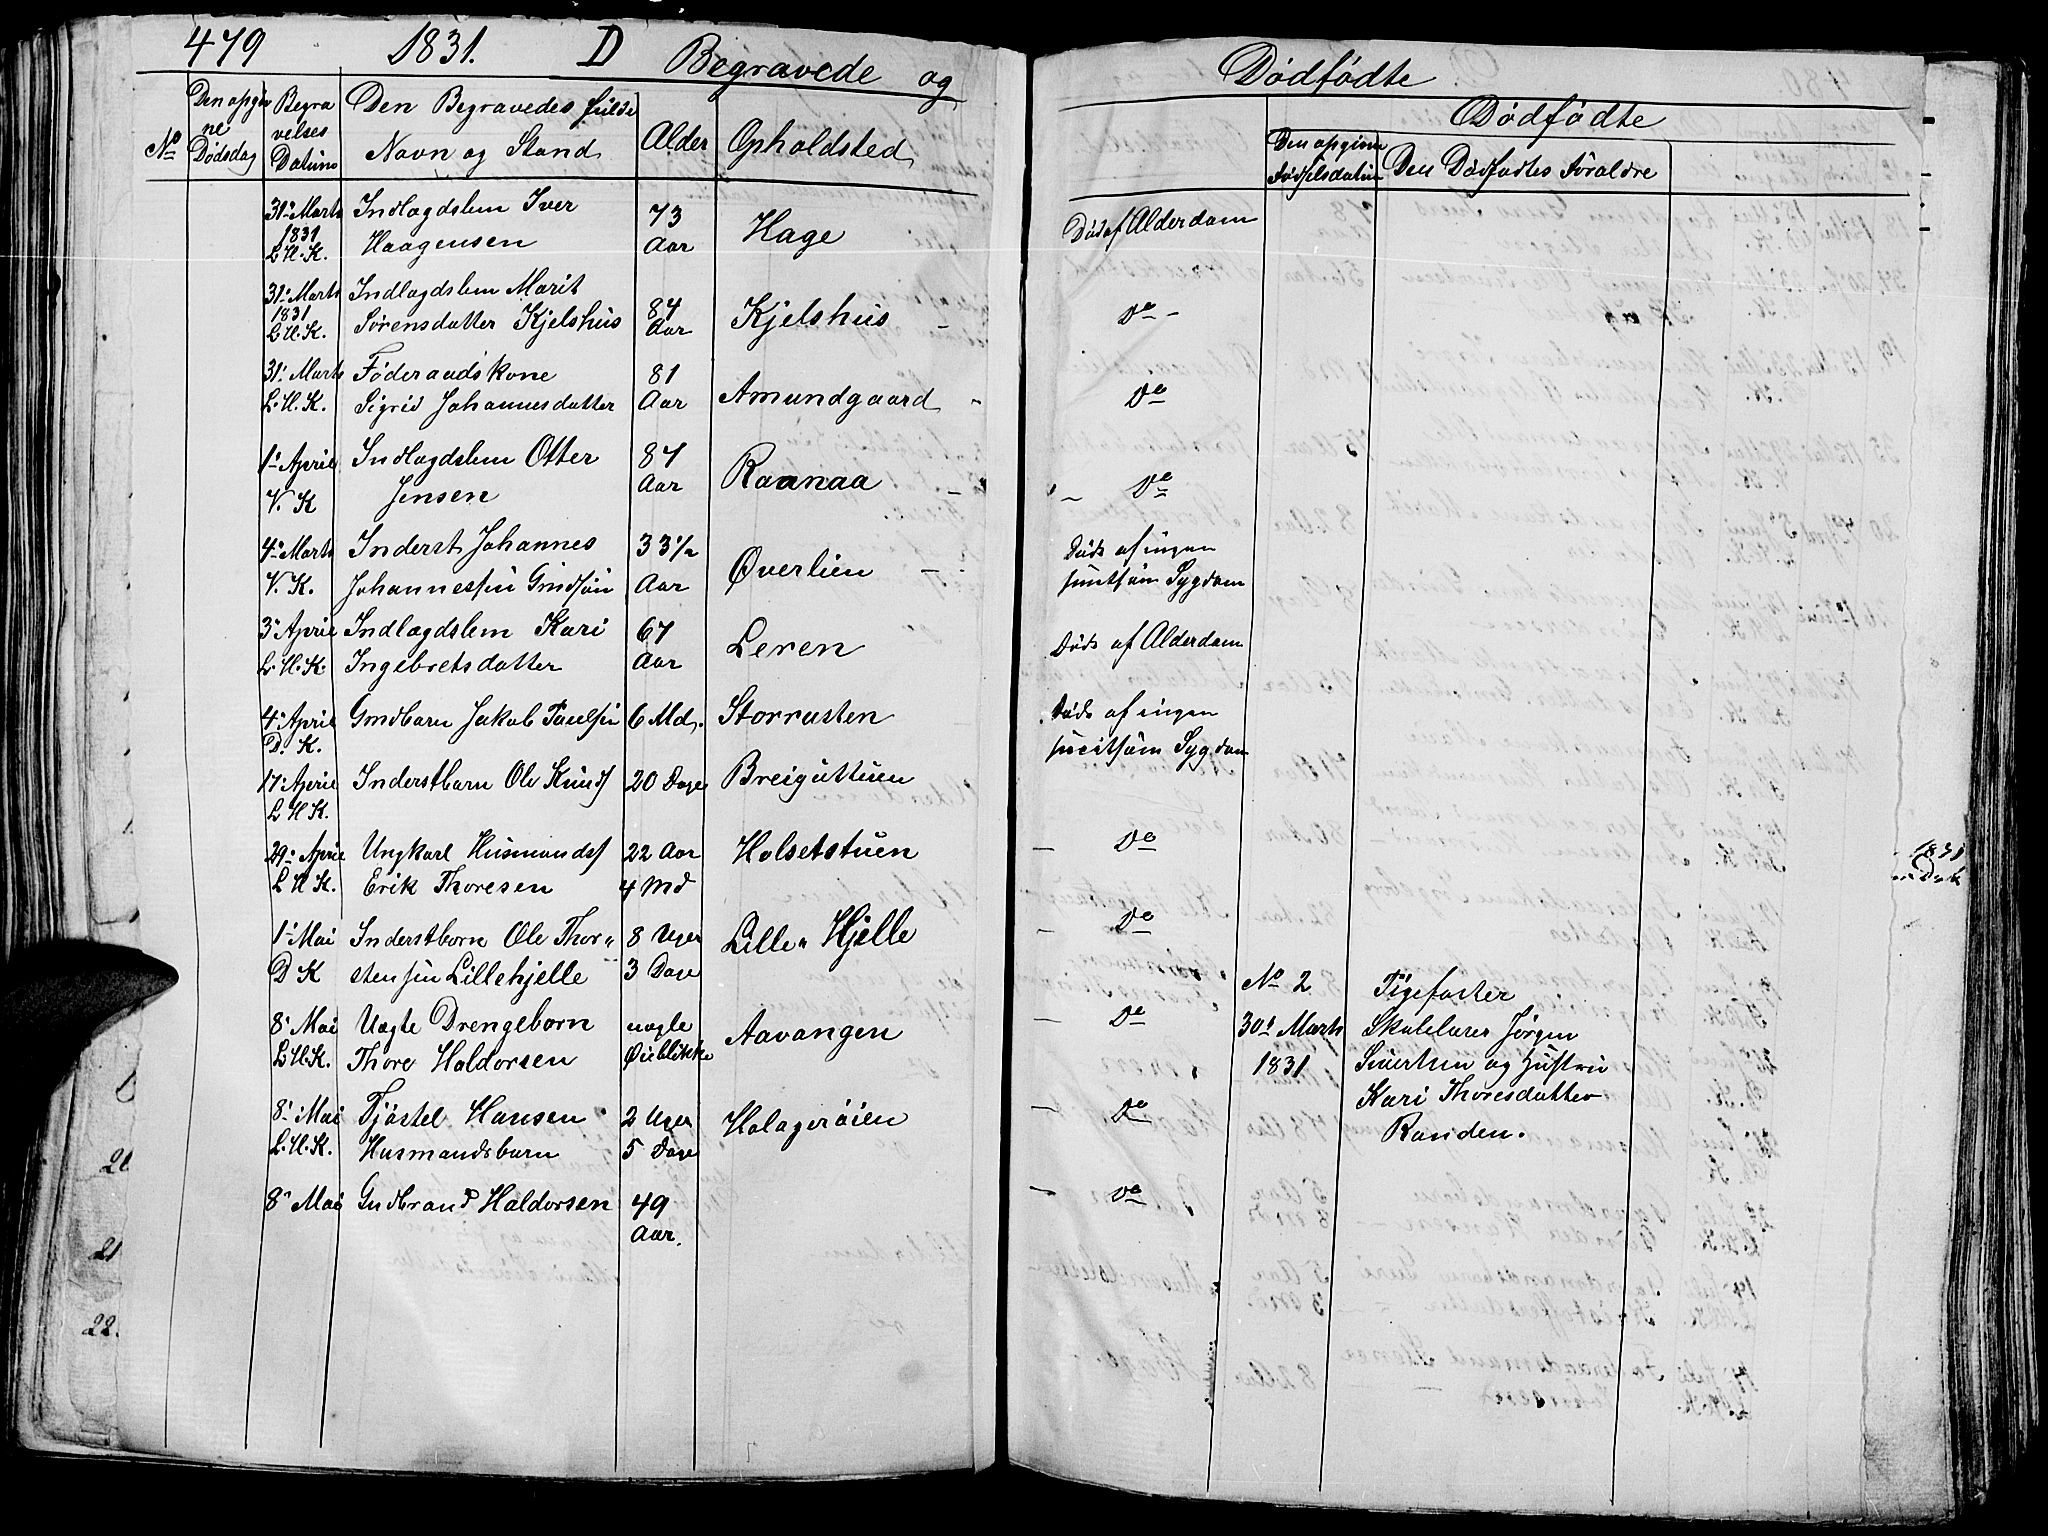 479 1831. D Begravede og
No
Den opgivne Dødsdag
Begravelses Datum
Den Begravedes fulde
Navn og Stand
Alder
Opholdsted
31: Marts 1831 L.H.K.
Indlægdslem Iver
Haagensen
73 Aar
Hage
31: Marts 1831 L.H.K.
Indlagdslem Marit
Sørensdatter Kjelshus
84 Aar
Kjelshus -
31: Marts L.H.K.
Føderaadskone
Sigrid Johannesdatter
81 Aar
Amundgaard -
1: April V. K
Indlagdslem Otter
Jensen
87 Aar
Raanaa -
4: Marts V. K.
Inderst Johannes
Johannessøn
33 1/2 Aar
Øverlien -
3: April L.H.K.
Indlægdslem Kari
Ingebretsdatter
67 Aar
Leren
4: April D. K.
Jakob
6 Md.
Storrusten
17: April L H K.
Inderstbarn Ole
20 Dage
Breiguttuen
29: April L H K.
Ungkarl Husmands
Erik Thoresen
22 Aar
4 Md
Holsetstuen
1: Mai D K
Inderstbarn Ole Thor„
stensøn Lillehjelle
8 Uger
3 Dage
Lille„ Hjelle
8: Mai L.H.K.
Uægte Drengebarn
Thore Haldorsen
nogle
Øieblikke
Aavangen
8: Mai L.H.K.
Tjøstel Hansen
Husmandsbarn
2 Uger
5 Dage
8: Mai
Gudbrand Haldorsen
49
Aar.
21
21
22.
Dødfødte
Dødfødte
Den opgivne
Fødselsdatum
Den Dødfødtes Foraldre
Død af Alderdom
Do -
Do
- Do
Døde af ingen
smitsom Sygdom
Døde af Alderdom
Døde af ingen
Sygdom
- Do
- Do
- Do
- Do
- Do
No 2
30: Marts
1831
Pigefoster
Skolelærer Jørgen
Sivertsen og Hustru
Kari Thoresdatter
Randen.
1831